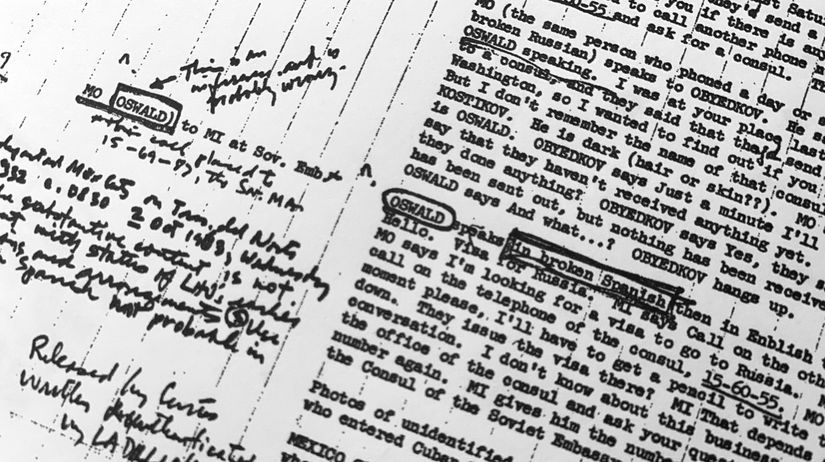 This is an
inference and is
probably wrong.
MO OSWALD, to MI at Sov. Emb
within call placed to
15-69-87, the Sov. MA
2 Oct 1963, Wednesday
substantive content is not
Spanish not probable in
Released by
st Satur
they'd send a
you if there is any
to call another phone n
60-55 and ask for a consul. Th
MO (the same person who phoned a day or s
broken Russian) speaks to OBYEDKOV. He sa
OSWALD speaking. I was at your place last
to a consul, and they said that they'd send
Washington, so I wanted to find out if you
But I don't remember the name of that consul
KOSTIKOV. He is dark (hair or skin??). MO
is OSWALD. OBYEDKOV says Just a minute I'll
say that they haven't received anything yet.
they done anything? OBYEDKOV says Yes, they s
has been sent out, but nothing has been receive
OSWALD says And what...? OBYEDKOV hangs up.
OSWALD speaks in broken Spanish then in Enblish t
Hello. Visa for Russia. MI says Call on the oth
MO says I'm looking for a visa to go to Russia.
call on the telephone of the consul, 15-60-55. MO
moment please, I'll have to get a pencil to write t
down. They issue the visa there? MI That depends
conversation. I don't know about this business
the office of the consul and ask your ques
number again. MI gives him the number
the Consul of the Soviet Embass
Photos of unidentified
who entered Cuba
MEXICO